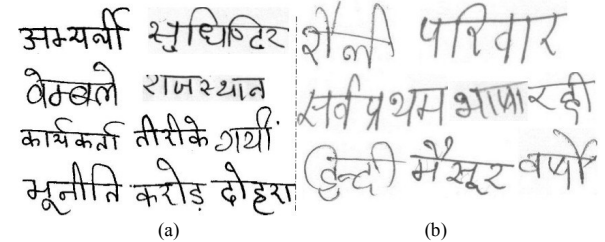 युधिष्ठिर
वेम्बले राजस्थान
कार्यकर्ता तीरीके गयीं
करोड़ दोहरा
(a)
शैली परिवार
सर्वप्रथम भाषा रही
हिन्दी मैसूर वर्षों
(b)